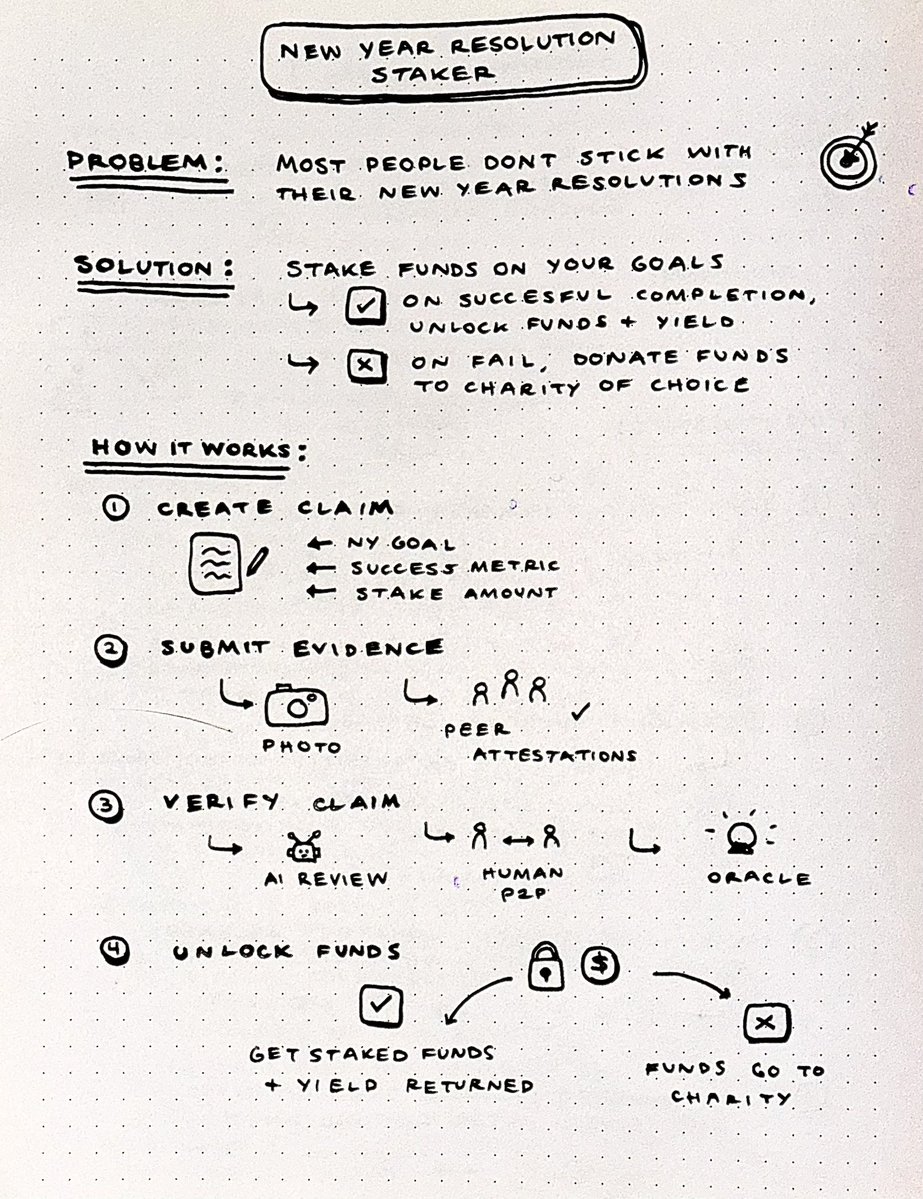 NEW YEAR RESOLUTION
STAKER
PROBLEM: MOST PEOPLE DONT STICK WITH
THEIR NEW YEAR RESOLUTIONS
SOLUTION: STAKE FUNDS ON YOUR GOALS
ON SUCCESFUL COMPLETION,
UNLOCK FUNDS + YIELD
ON FAIL, DONATE FUNDS
TO CHARITY OF CHOICE
HOW IT WORKS:
1 CREATE CLAIM
NY GOAL
SUCCESS METRIC
STAKE AMOUNT
2 SUBMIT EVIDENCE
PHOTO
PEER
ATTESTATIONS
3 VERIFY CLAIM
AI REVIEW
HUMAN
P2P
ORACLE
4 UNLOCK FUNDS
$
GET STAKED FUNDS
+ YIELD RETURNED
FUNDS GO TO
CHARITY